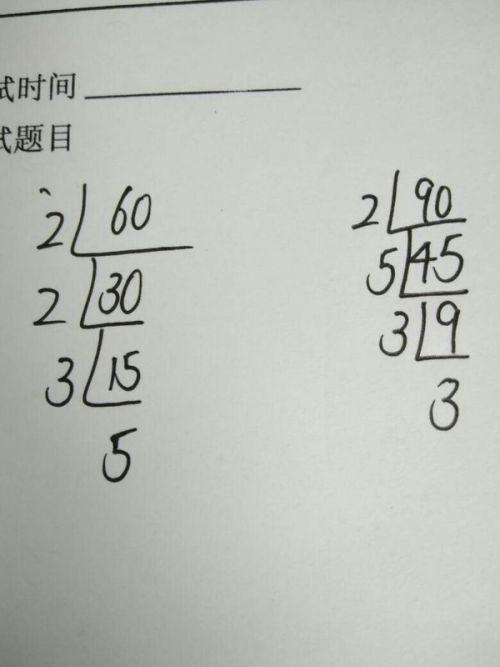 试时间
试题目
2 60
2 30
3 15
5
2 90
5 45
3 9
3